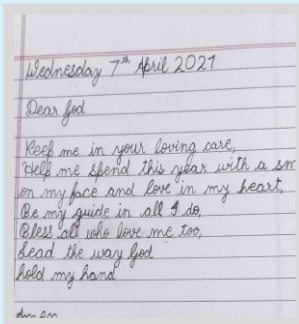 Wednesday 7th April 2021
Dear God
Keep me in your loving care,
Help me spend this year with a sm
on my face and love in my heart,
Be my guide in all I do,
Bless all who love me too,
Lead the way God
hold my hand
Amen